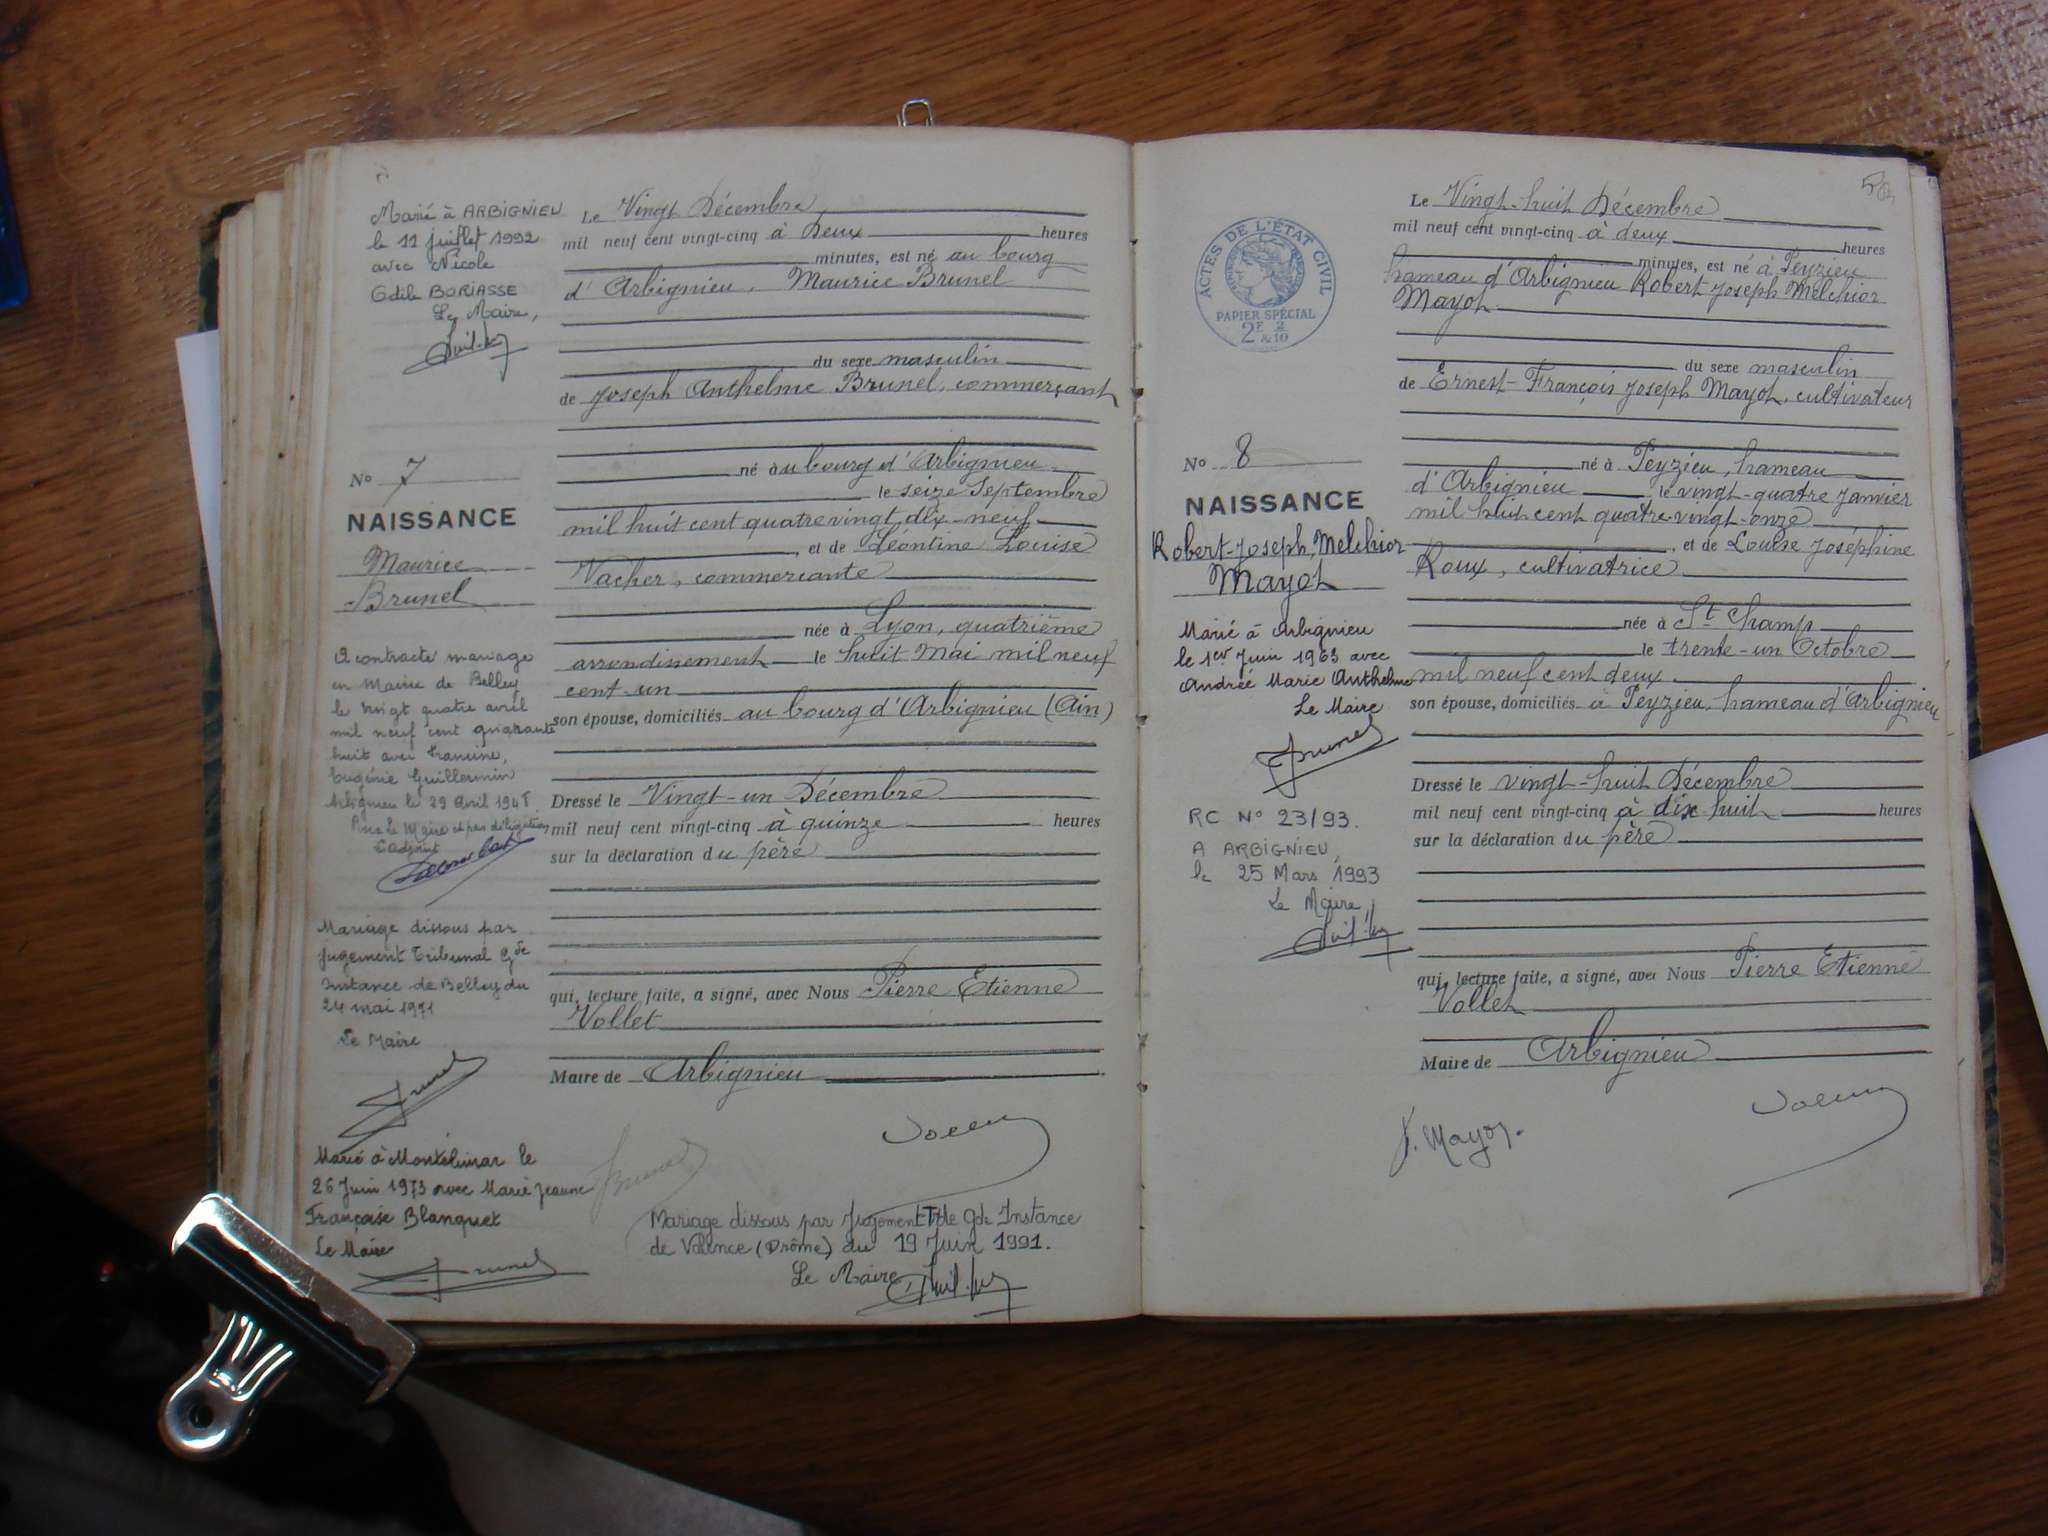 Marié à ARBIGNIEU
le 11 juillet 1992
avec Nicole
Odile BORIASSE
Le Maire,
N° 7
NAISSANCE
Maurice
Brunel
A contracté mariage
en Mairie de Belley
le vingt quatre avril
mil neuf cent quarante
huit avec Francine,
Eugénie Guillermin
Arbignieu le 29 Avril 1948
Pour le Maire et par délégation
L'adjoint
Mariage dissous par
jugement Tribunal Gde
Instance de Belley du
24 mai 1971
Le Maire
Brunel
Marié à Montélimar le
26 Juin 1973 avec Marie Jeanne
Françoise Blanquet
Le Maire
Brunel
Le Vingt Décembre
mil neuf cent vingt-cinq à Deux heures
minutes, est né au bourg
d'Arbignieu, Maurice Brunel
du sexe masculin
de Joseph Anthelme Brunel, commerçant
né au bourg d'Arbignieu
le seize Septembre
mil huit cent quatre vingt dix-neuf
, et de Léontine Louise
Vacher, commerçante
née à Lyon, quatrième
arrondissement le huit Mai mil neuf
cent-un
son épouse, domiciliés au bourg d'Arbignieu (Ain)
Dressé le Vingt-un Décembre
mil neuf cent vingt-cinq à quinze heures
sur la déclaration du père
qui, lecture faite, a signé, avec Nous Pierre Etienne
Vollet
Maire de Arbignieu
Brunel
Mariage dissous par Jugement T de Gde Instance
de Valence (Drôme) du 19 Juin 1991.
Le Maire
50
ACTES DE L'ÉTAT CIVIL
PAPIER SPÉCIAL
2F & 2/10
N° 8
NAISSANCE
Robert-Joseph, Melchior
Mayot
Marié à Arbignieu
le 1er Juin 1963 avec
Andrée Marie Anthelme
Le Maire
Brunel
RC N° 23/93.
A ARBIGNIEU,
le 25 Mars 1993
Le Maire,
Le Vingt-huit Décembre
mil neuf cent vingt-cinq à deux heures
minutes, est né à Peyzieu
hameau d'Arbignieu Robert Joseph Melchior
Mayot
du sexe masculin
de Ernest-François Joseph Mayot, cultivateur
né à Peyzieu, hameau
d'Arbignieu le vingt-quatre Janvier
mil huit cent quatre-vingt-onze
, et de Louise Joséphine
Roux, cultivatrice
née à St Champ
le trente-un Octobre
mil neuf cent deux
son épouse, domiciliés à Peyzieu, hameau d'Arbignieu
Dressé le vingt-huit Décembre
mil neuf cent vingt-cinq à dix-huit heures
sur la déclaration du père
qui, lecture faite, a signé, avec Nous Pierre Etienne
Vollet
Maire de Arbignieu
J. Mayot.